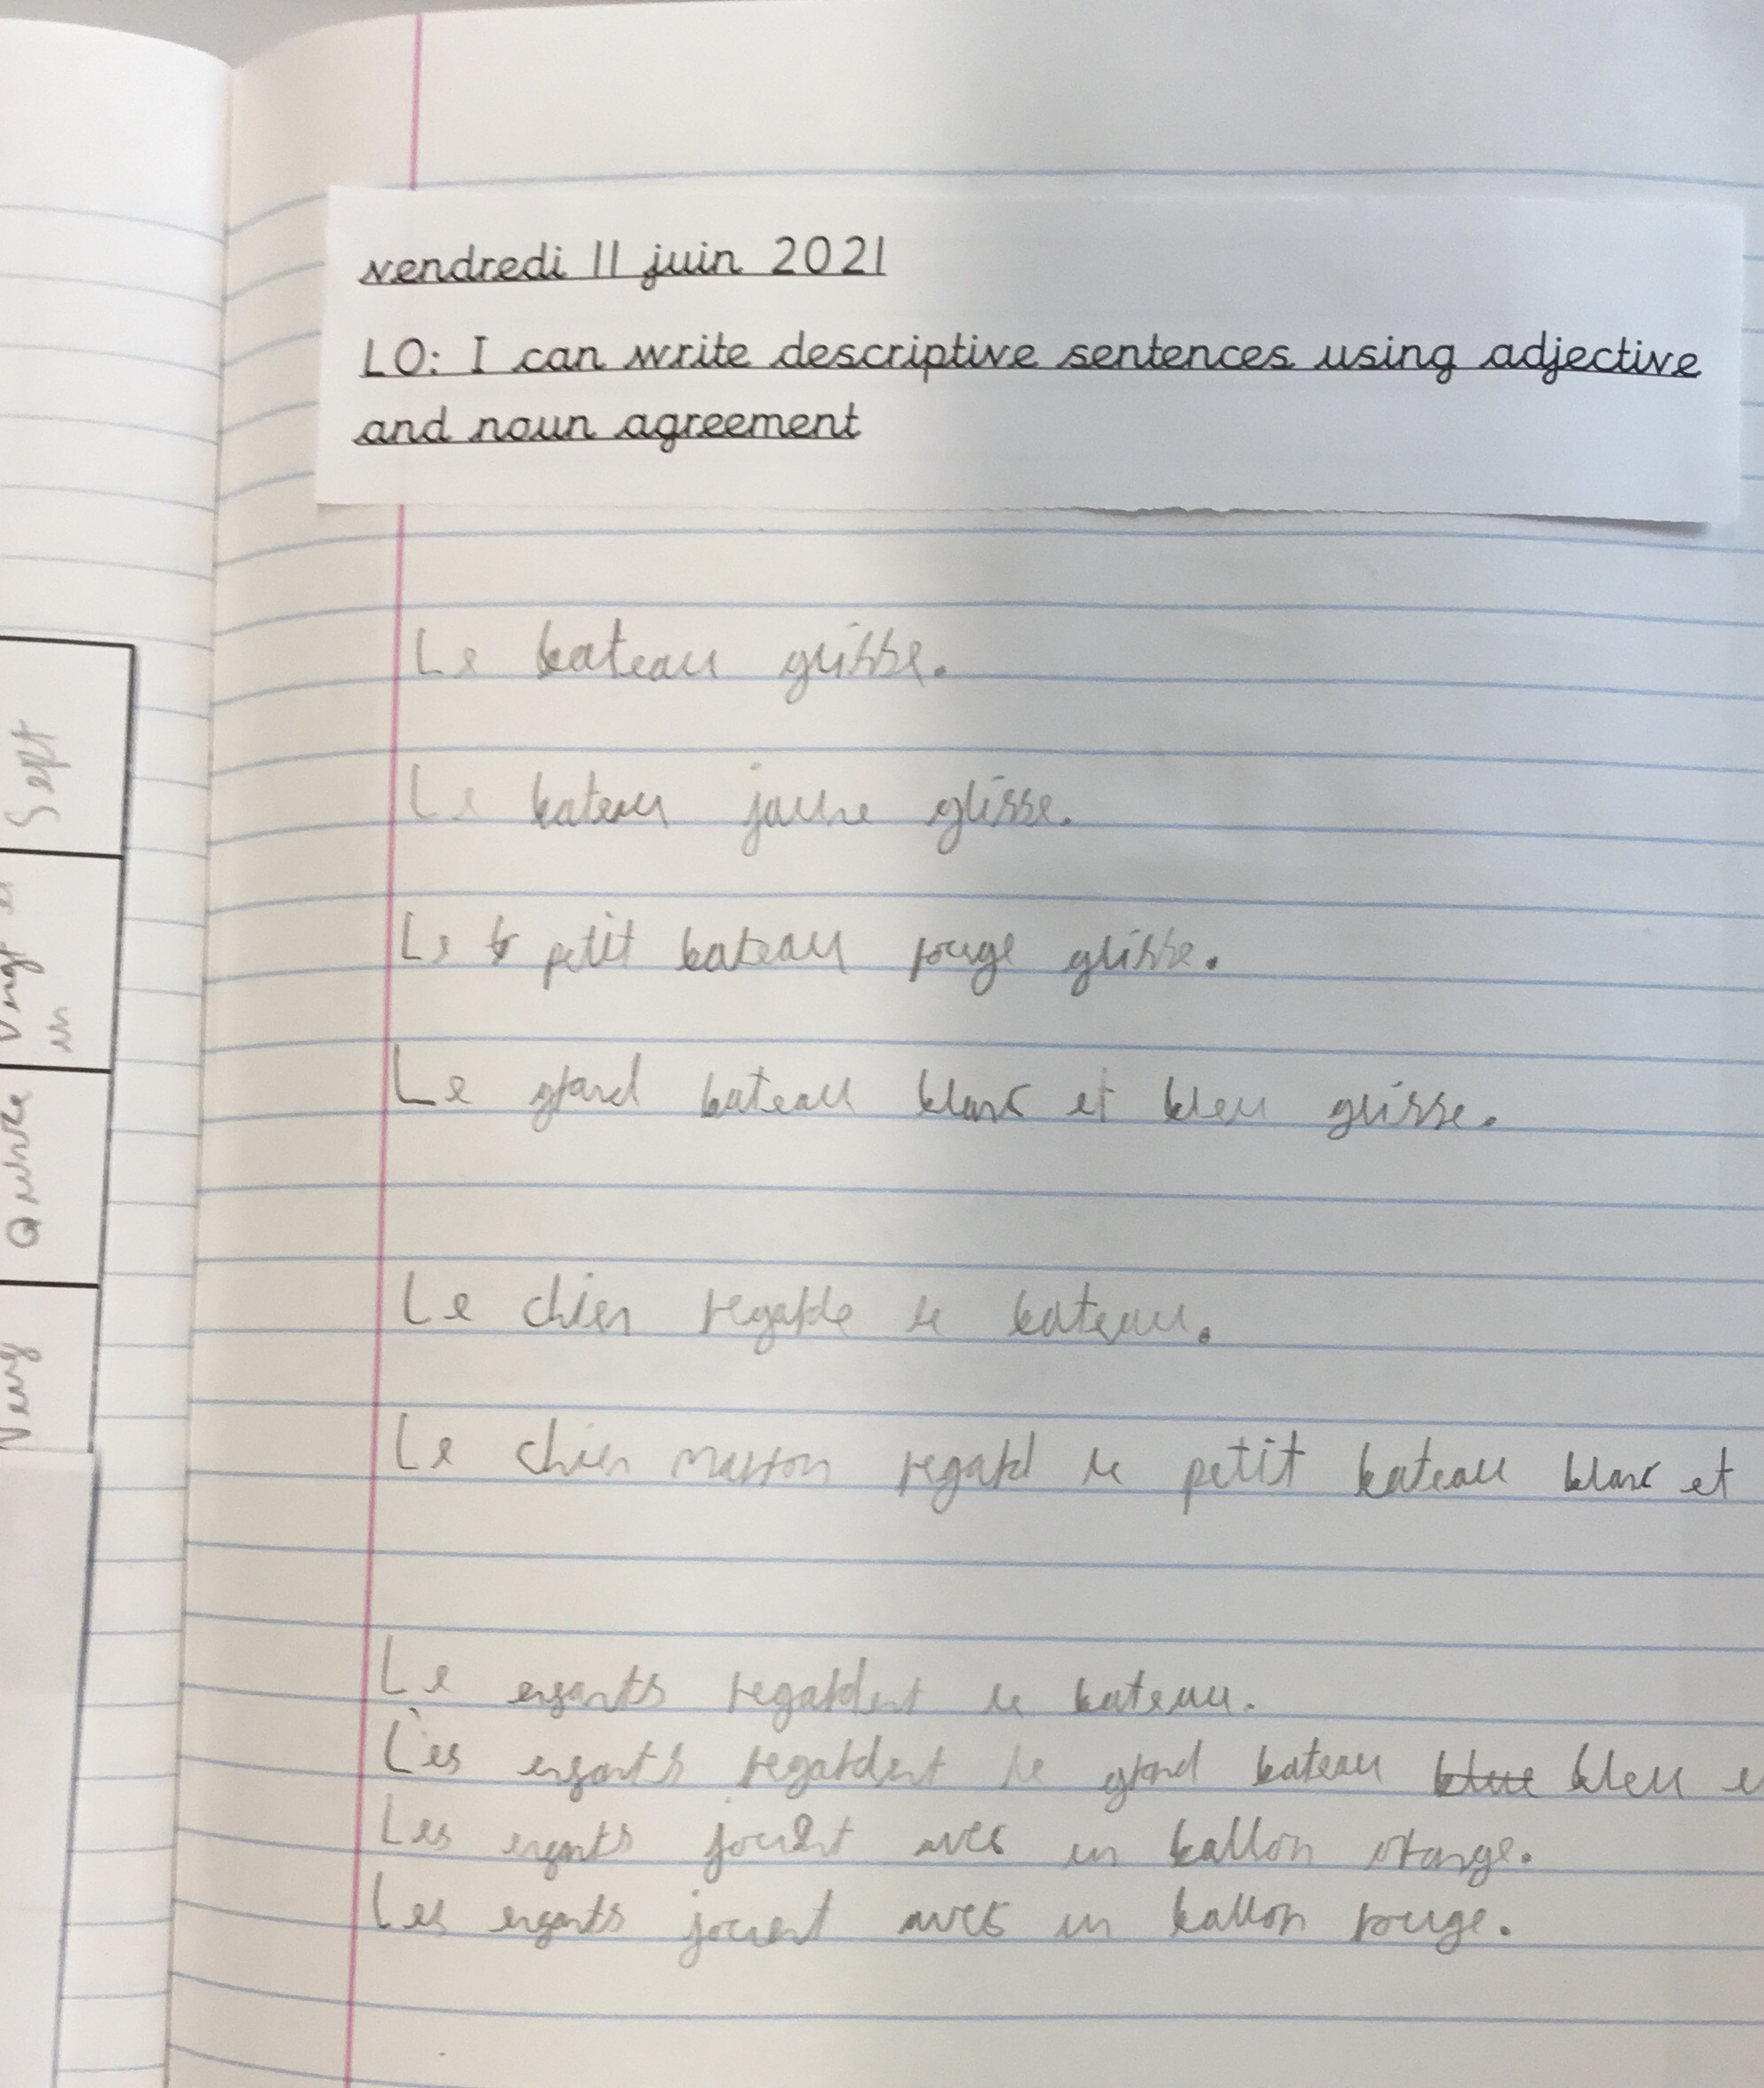 vendredi 11 juin 2021
LO: I can write descriptive sentences using adjective
and noun agreement
Le bateau glisse.
Le bateau jaune glisse.
Le petit bateau rouge glisse.
Le grand bateau blanc et bleu glisse.
Le chien regarde le bateau.
Le chien marron regard le petit bateau blanc et
Le enfants regardent le bateau.
Les enfants regardent le grand bateau blue bleu
Les enfants jouent avec un ballon orange.
Les enfants jouent avec un ballon rouge.
Sept
Vingt et
un
Quinze
Neuf